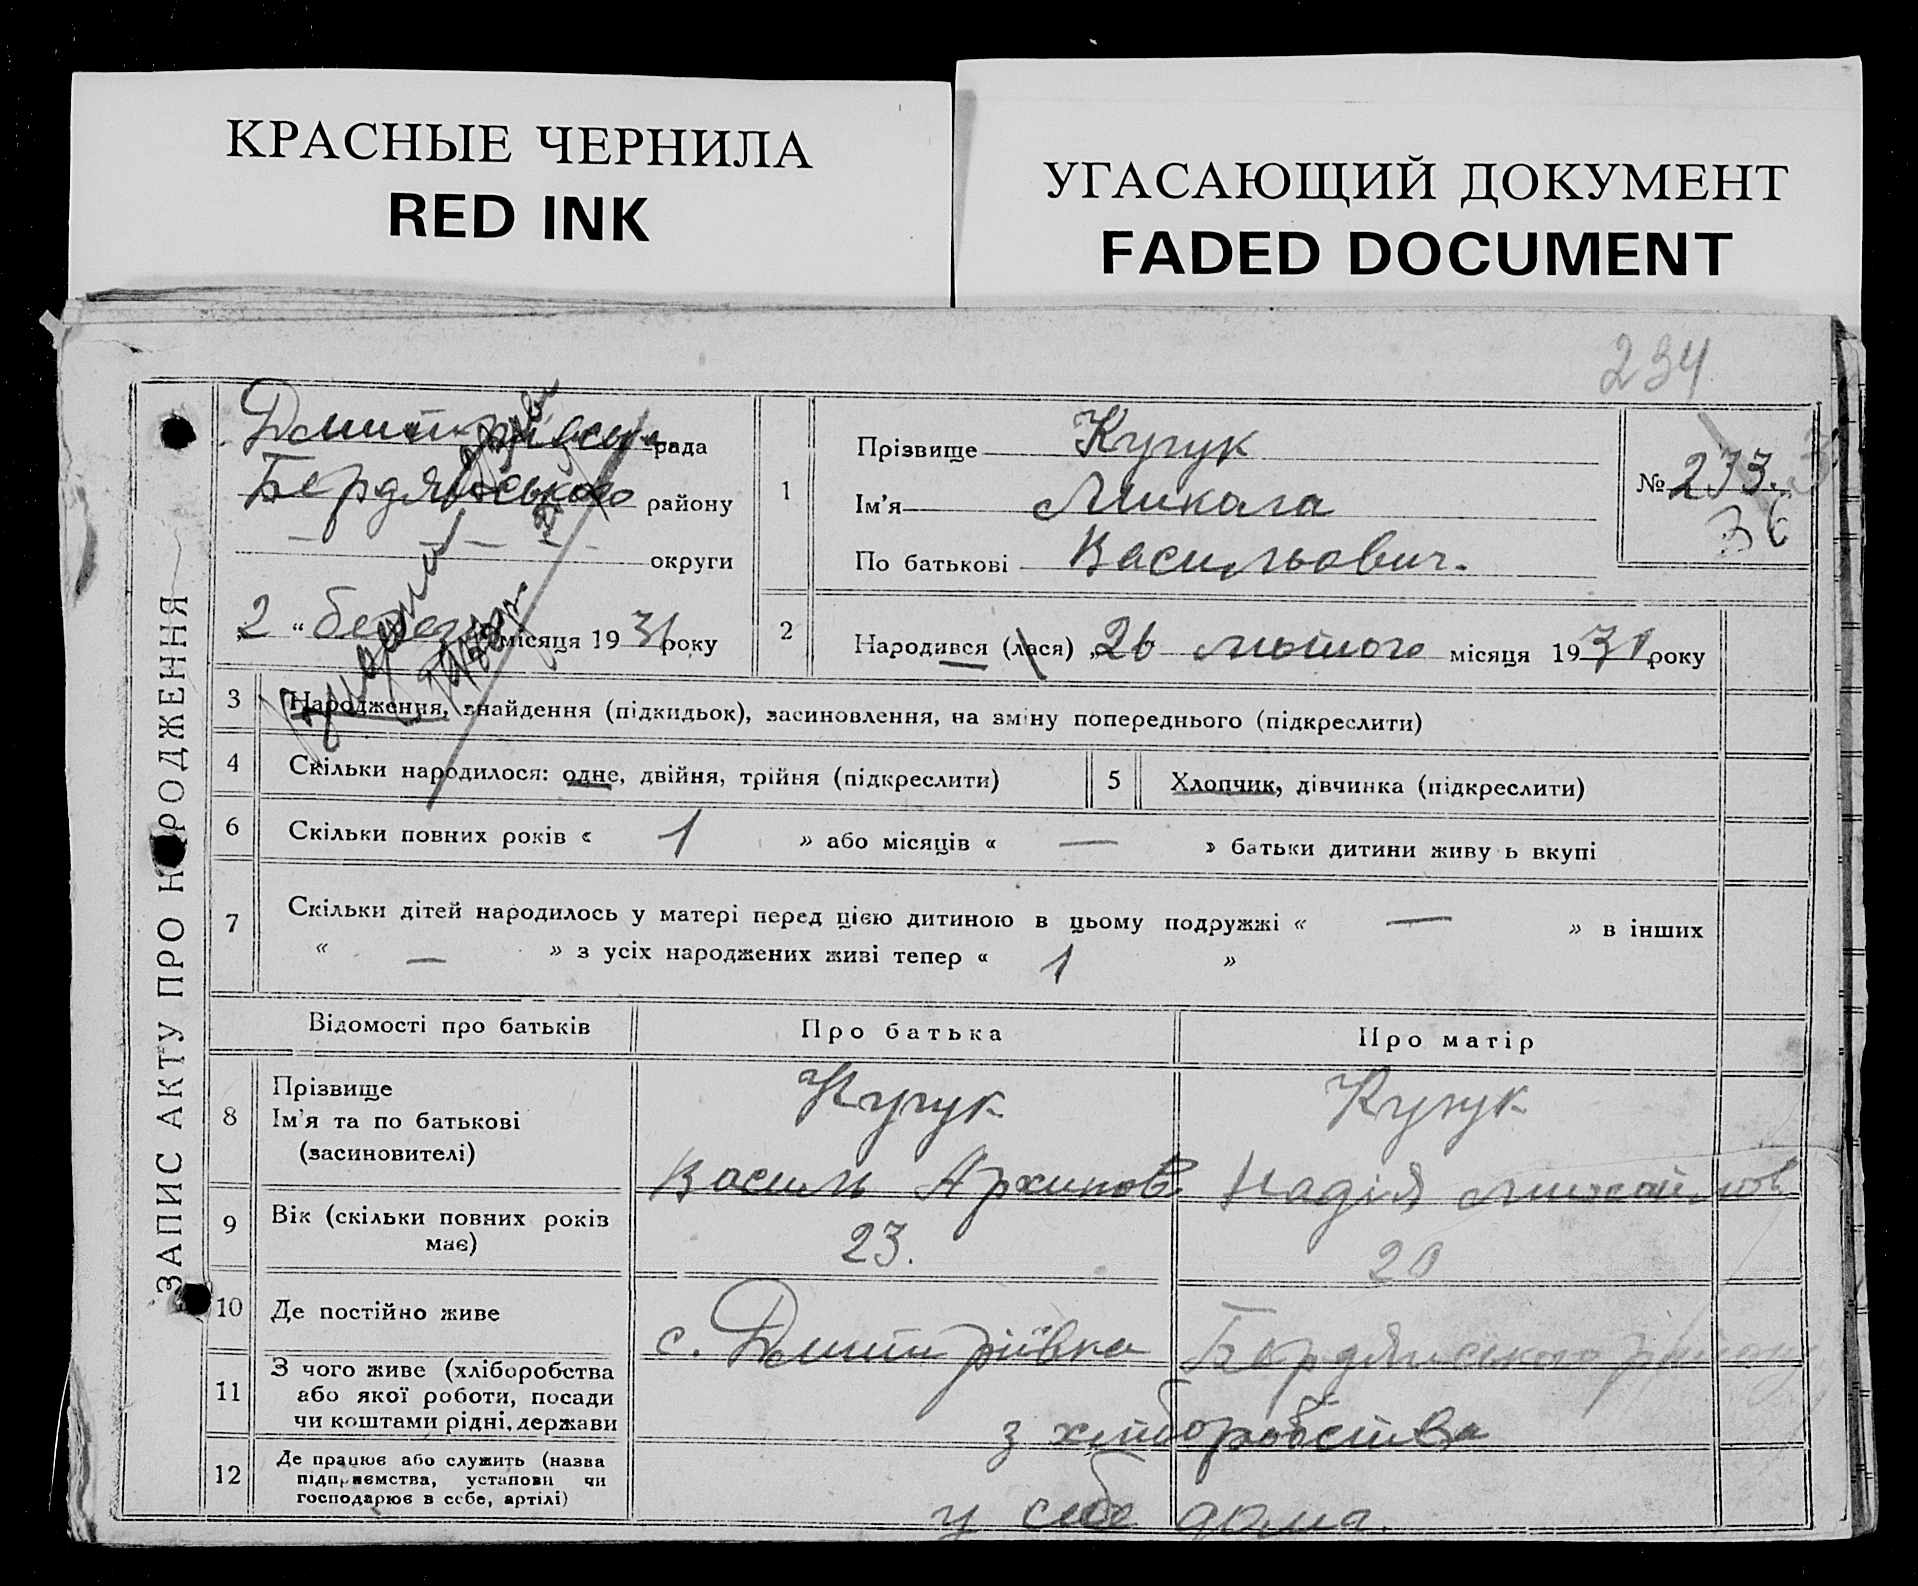 КРАСНЫЕ ЧЕРНИЛА
RED INK
УГАСАЮЩИЙ ДОКУМЕНТ
FADED DOCUMENT
234
ЗАПИС АКТУ ПРО НАРОДЖЕННЯ
рада
Бердянського району
округи
„2“ березня місяця 1931 року
1
Прізвище Кугук
Ім'я Микола
По батькові Васильович.
№ 233.
36
2
Народився (лася) „26 лютого місяця 1931 року
3 Народження, знайдення (підкидьок), засиновлення, на зміну попереднього (підкреслити)
4 Скільки народилося: одне, двійня, трійня (підкреслити)
5 Хлопчик, дівчинка (підкреслити)
6 Скільки повних років « 1 » або місяців « — » батьки дитини живу ь вкупі
7 Скільки дітей народилось у матері перед цією дитиною в цьому подружжі « — » в інших
« — » з усіх народжених живі тепер « 1 »
Відомості про батьків Про батька Про матір
8 Прізвище Кугук Кугук
Ім'я та по батькові
(засиновителі) Василь Архипов Надія Михайлов
9 Вік (скільки повних років має) 23. 20
10 Де постійно живе с. Дмитріївка Бердянського району
11 З чого живе (хліборобства
або якої роботи, посади
чи коштами рідні, держави
з хліборобства
12 Де працює або служить (назва
підприємства, установи чи
господарює в себе, артілі)
у себе дома.